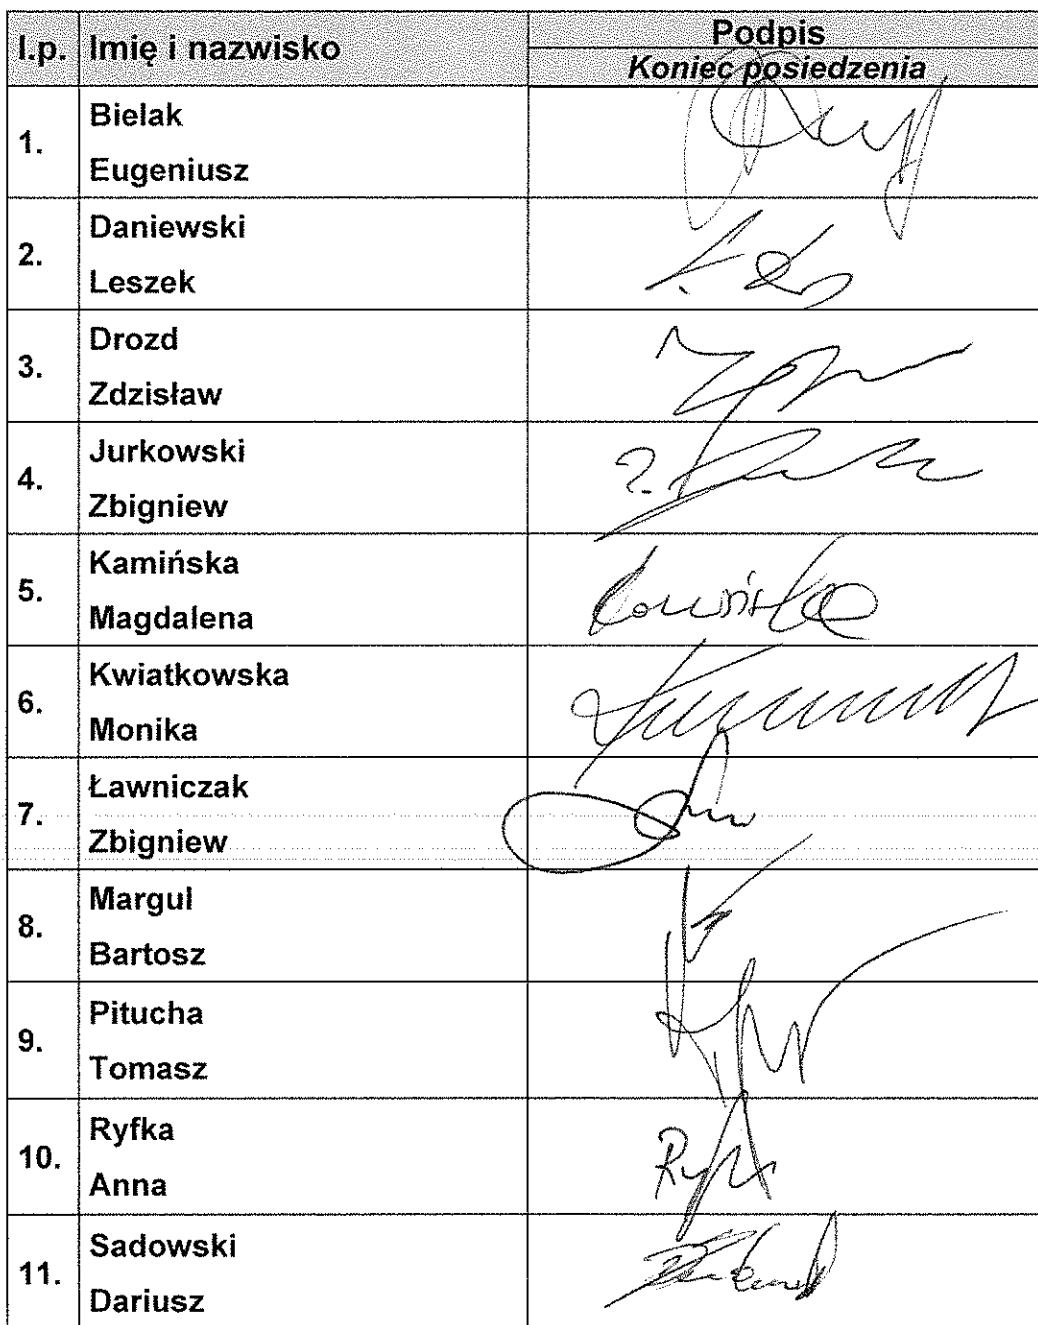 l.p. Imię i nazwisko Podpis
Koniec posiedzenia
1. Bielak
Eugeniusz
2. Daniewski
Leszek
3. Drozd
Zdzisław
4. Jurkowski
Zbigniew
5. Kamińska
Magdalena
6. Kwiatkowska
Monika
7. Ławniczak
Zbigniew
8. Margul
Bartosz
9. Pitucha
Tomasz
10. Ryfka
Anna
11. Sadowski
Dariusz